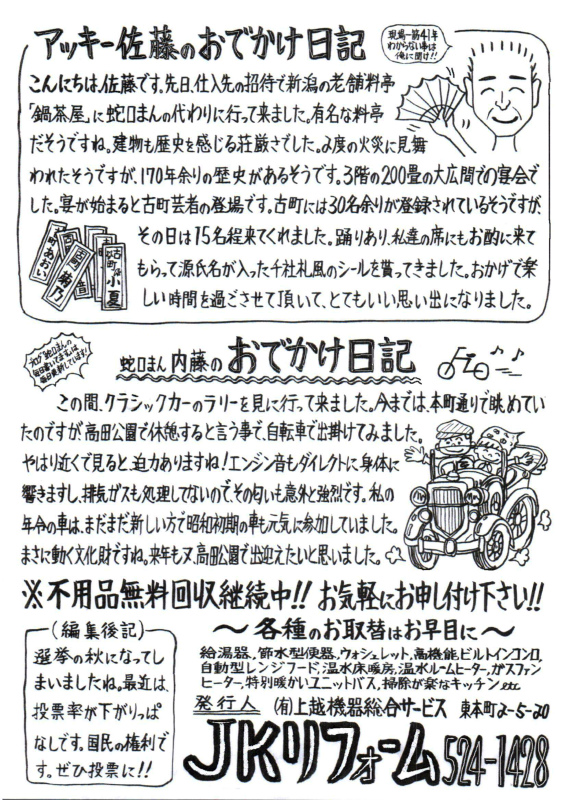 アッキー佐藤のおでかけ日記
現場一筋41年
わからない事は
俺に聞け!!
こんにちは、佐藤です。先日、仕入先の招待で新潟の老舗料亭
「鍋茶屋」に蛇口まんの代わりに行って来ました。有名な料亭
だそうですね。建物も歴史を感じる荘厳さでした。2度の火災に見舞
われたそうですが、170年余りの歴史があるそうです。3階の200畳の大広間での宴会で
した。宴が始まると古町芸者の登場です。古町には30名余りが登録されているそうですが、
その日は15名程来てくれました。踊りあり、私達の席にもお酌に来て
もらって源氏名が入った千社札風のシールを貰ってきました。おかげで楽
しい時間を過ごさせて頂いて、とてもいい思い出になりました。
町
あおい
菊乃
音
古町
小夏
ブログ「蛇口まんの
毎日書いてます」は
毎日更新しています!
蛇口まん 内藤の おでかけ日記
この間、クラシックカーのラリーを見に行って来ました。今までは、本町通りで眺めてい
たのですが、高田公園で休憩すると言う事で、自転車で出掛けてみました。
やはり近くで見ると、迫力ありますね!エンジン音もダイレクトに身体に
響きますし、排気ガスも処理してないので、その匂いも意外と強烈です。私の
年令の車は、まだまだ新しい方で昭和初期の車も元気に参加していました。
まさに動く文化財ですね。来年も又、高田公園で出迎えたいと思いました。
※不用品無料回収継続中!! お気軽にお申し付け下さい!!
〜各種のお取替はお早目に〜
給湯器、節水型便器、ウォシュレット、高機能、ビルトインコンロ、
自動型レンジフード、温水床暖房、温水ルームヒーター、ガスファン
ヒーター、特別暖かいユニットバス、掃除が楽なキッチン etc
(編集後記)
選挙の秋になってし
まいましたね。最近は、
投票率が下がりっぱ
なしです。国民の権利で
す。ぜひ投票に!!
発行人 (有)上越機器総合サービス 東本町2-5-20
JKリフォーム 524-1428